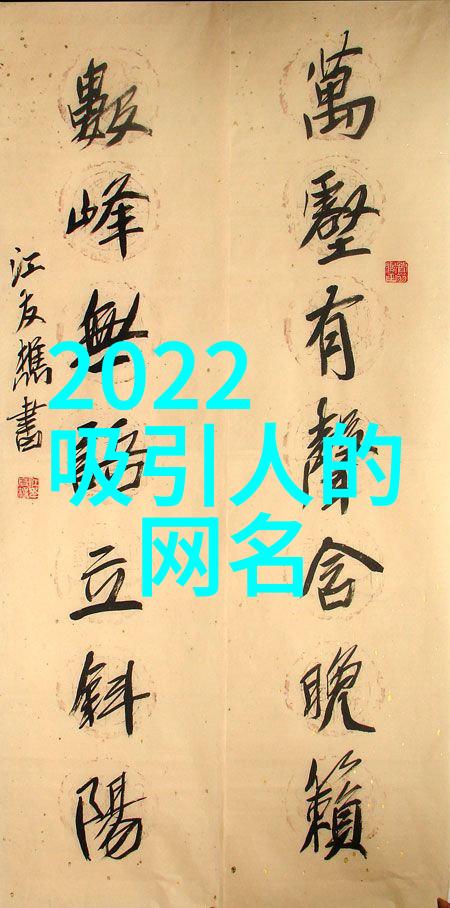 萬壑有聲含晚籟
數峰無語立斜陽
江友樵書
2022
吸引人的
网名